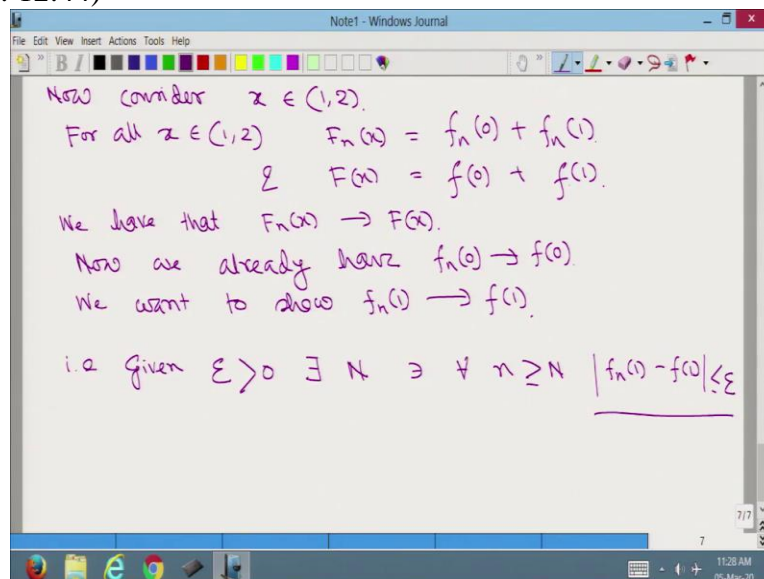 12:44)
Note1 - Windows Journal
File Edit View Insert Actions Tools Help
Now consider x ∈ (1,2).
For all x ∈ (1,2) Fn(x) = fn(0) + fn(1).
& F(x) = f(0) + f(1).
We have that Fn(x) → F(x).
Now we already have fn(0) → f(0).
We want to show fn(1) → f(1).
i.e given ε>0 ∃ N ∋ ∀ n ≥ N |fn(1) - f(1)| ≤ ε
7/7
7
11:28 AM
05-Mar-20